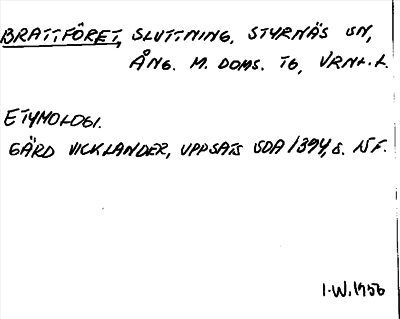 BRATTFÖRET, SLUTTNING, STYRNÄS SN,
ÅNG. M. DOMS. TG, VRNL.L.
ETYMOLOGI.
GÄRD VICKLANDER, UPPSATS SOA 1394, S. 15 F.
I.W. 1956